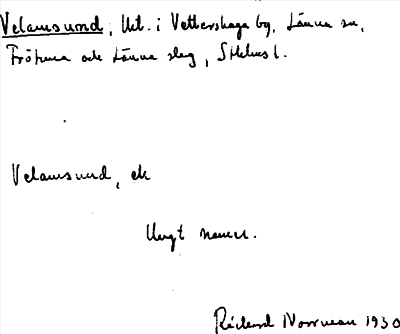 Velamsund, Ut. i Vettershaga by, Länna sn,
Frötuna och Länna slg, Sthlms l.
Velamsund, ek
Ungt namn.
Rickard Norrman 1930